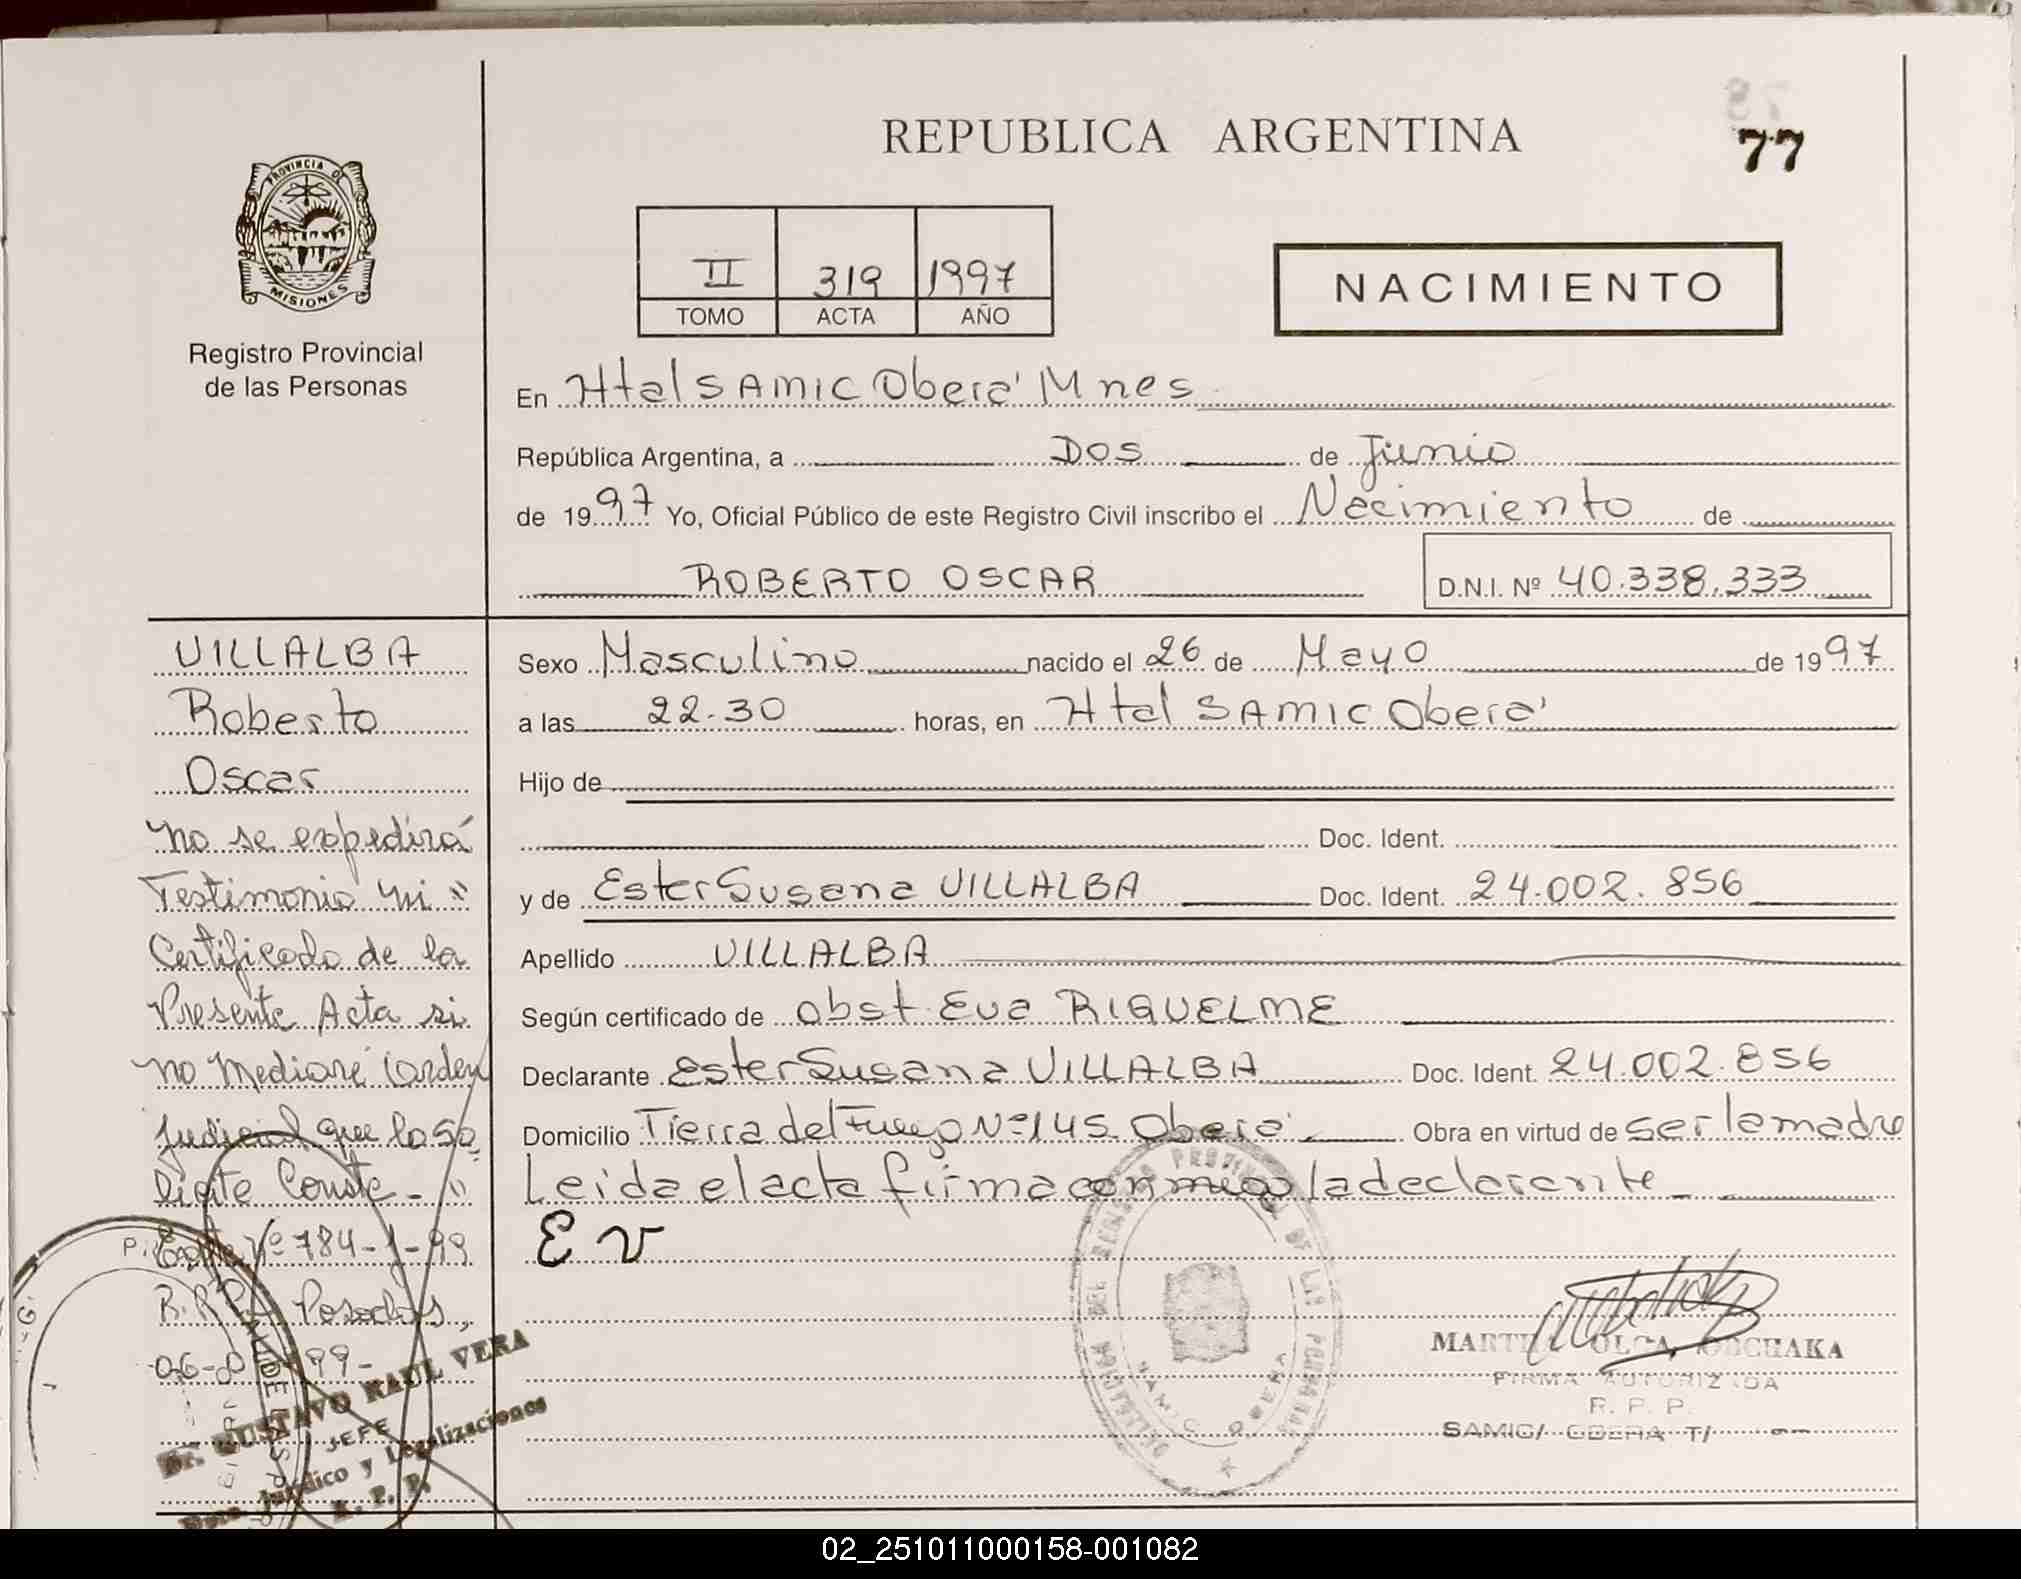 REPUBLICA ARGENTINA
77
PROVINCIA DE
MISIONES
Registro Provincial
de las Personas
II 319 1997
TOMO ACTA AÑO
NACIMIENTO
En Htal SAMIC Oberá Mnes
República Argentina, a Dos de Junio
de 1997 Yo, Oficial Público de este Registro Civil inscribo el Nacimiento de
ROBERTO OSCAR D.N.I. Nº 40.338.333
VILLALBA
Roberto
Oscar
no se expedirá
Testimonio ni "
Certificado de la
Presente Acta si
no Mediare Orden
Judicial que lo so
licite Conste - "
Expte Nº 784-J-99
R.R.P.P. Posadas,
Sexo Masculino nacido el 26 de Mayo de 1997
a las 22.30 horas, en Htal SAMIC Oberá
Hijo de
Doc. Ident.
y de Ester Susana VILLALBA Doc. Ident. 24.002.856
Apellido VILLALBA
Según certificado de Obst. Eva RIQUELME
Declarante Ester Susana VILLALBA Doc. Ident. 24.002.856
Domicilio Tierra del Fuego Nº 145. Oberá Obra en virtud de ser la madre
Leida el acta firma conmigo la declarante
E V
MARTHA OLGA
FIRMA AUTORIZADA
R. P. P.
SAMIC/ OBERA T/
Dr. GUSTAVO RAUL VERA
JEFE
Dpto. Jurídico y Legalizaciones
R. P. P.
02_251011000158-001082